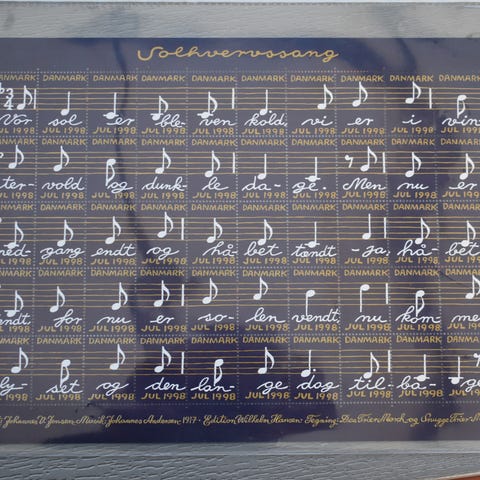 Solhvervssang
DANMARK DANMARK DANMARK DANMARK DANMARK DANMARK DANMARK DANMARK DANMARK DANMARK
3 4
Vor sol er ble- ven kold, vi er i vin-
JUL 1998 JUL 1998 JUL 1998 JUL 1998 JUL 1998 JUL 1998 JUL 1998 JUL 1998 JUL 1998 JUL 1998
DANMARK DANMARK DANMARK DANMARK DANMARK DANMARK DANMARK DANMARK DANMARK DANMARK
ter- vold og dunk- le da- ge. Men nu er
JUL 1998 JUL 1998 JUL 1998 JUL 1998 JUL 1998 JUL 1998 JUL 1998 JUL 1998 JUL 1998 JUL 1998
DANMARK DANMARK DANMARK DANMARK DANMARK DANMARK DANMARK DANMARK DANMARK DANMARK
ned- gang endt og hå- bet tændt -ja, hå- bet
JUL 1998 JUL 1998 JUL 1998 JUL 1998 JUL 1998 JUL 1998 JUL 1998 JUL 1998 JUL 1998 JUL 1998
DANMARK DANMARK DANMARK DANMARK DANMARK DANMARK DANMARK DANMARK DANMARK DANMARK
ændt for nu er so- len vendt nu kom- me
JUL 1998 JUL 1998 JUL 1998 JUL 1998 JUL 1998 JUL 1998 JUL 1998 JUL 1998 JUL 1998 JUL 1998
DANMARK DANMARK DANMARK DANMARK DANMARK DANMARK DANMARK DANMARK DANMARK DANMARK
ly- set og den lan- ge dag til- ba- ge
JUL 1998 JUL 1998 JUL 1998 JUL 1998 JUL 1998 JUL 1998 JUL 1998 JUL 1998 JUL 1998 JUL 1998
Johannes V. Jensen. Musik: Johannes Andersen 1917 · Edition Wilhelm Hansen. Tegning: Trier Mørch og Trier